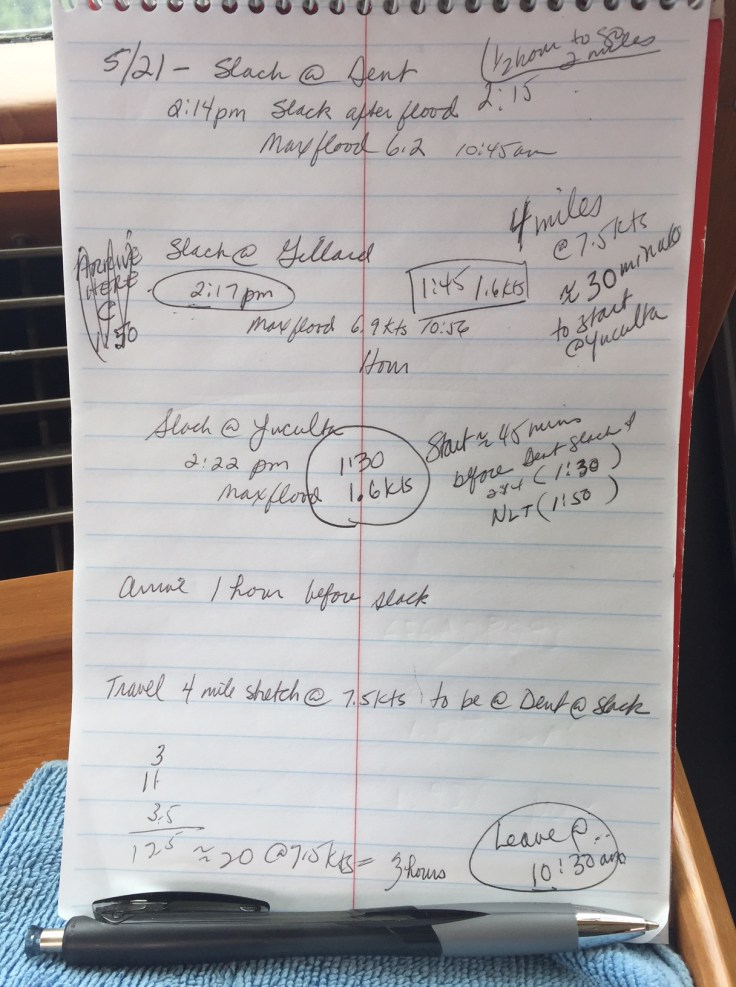 5/21 - Slack @ Dent
(1/2 hour to go
2 miles
2:14pm Slack after flood 2:15
Max flood 6.2 10:45am
4 miles
@ 7.5kts
≈ 30 minutes
to start
@ Yuculta
ARRIVE
HERE
@
1:50
Slack @ Gillard
2:17pm
1:45 1.6kts
Max flood 6.9kts 10:56
Hour
Slack @ Yuculta
2:22 pm 1:30
Max flood 1.6kts
Start ≈ 45 mins
before Dent Slack &
(1:30)
NLT (1:50)
arrive 1 hour before slack
Travel 4 mile stretch @ 7.5kts to be @ Dent @ Slack
3
11
3.5
≈ 20 @ 7.5kts = 3 hours
Leave @..
10:30am